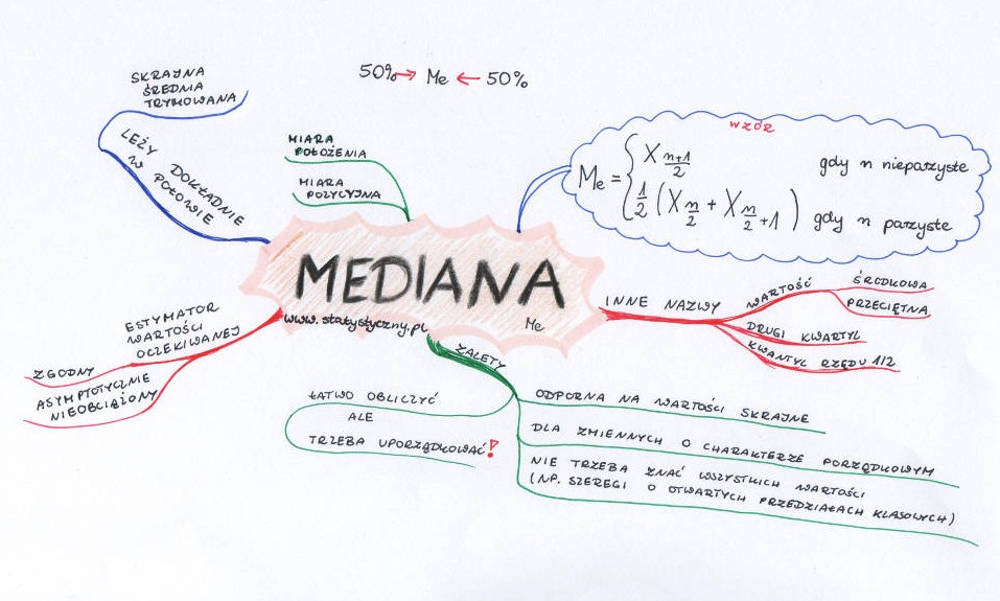 50% → Me ← 50%
SKRAJNA
ŚREDNIA
TRYMOWANA
LEŻY DOKŁADNIE
W POŁOWIE
MIARA
POŁOŻENIA
MIARA
POZYCYJNA
WZÓR
Me = { X (n+1)/2 gdy n nieparzyste
1/2 (X n/2 + X n/2 +1) gdy n parzyste
MEDIANA
www.statystyczny.pl
Me
INNE NAZWY
WARTOŚĆ
ŚRODKOWA
PRZECIĘTNA
DRUGI KWARTYL
KWANTYL RZĘDU 1/2
ESTYMATOR
WARTOŚCI
OCZEKIWANEJ
ZGODNY
ASYMPTOTYCZNIE
NIEOBCIĄŻONY
ZALETY
ŁATWO OBLICZYĆ
ALE
TRZEBA UPORZĄDKOWAĆ!
ODPORNA NA WARTOŚCI SKRAJNE
DLA ZMIENNYCH O CHARAKTERZE PORZĄDKOWYM
NIE TRZEBA ZNAĆ WSZYSTKICH WARTOŚCI
(NP. SZEREGI O OTWARTYCH PRZEDZIAŁACH KLASOWYCH)